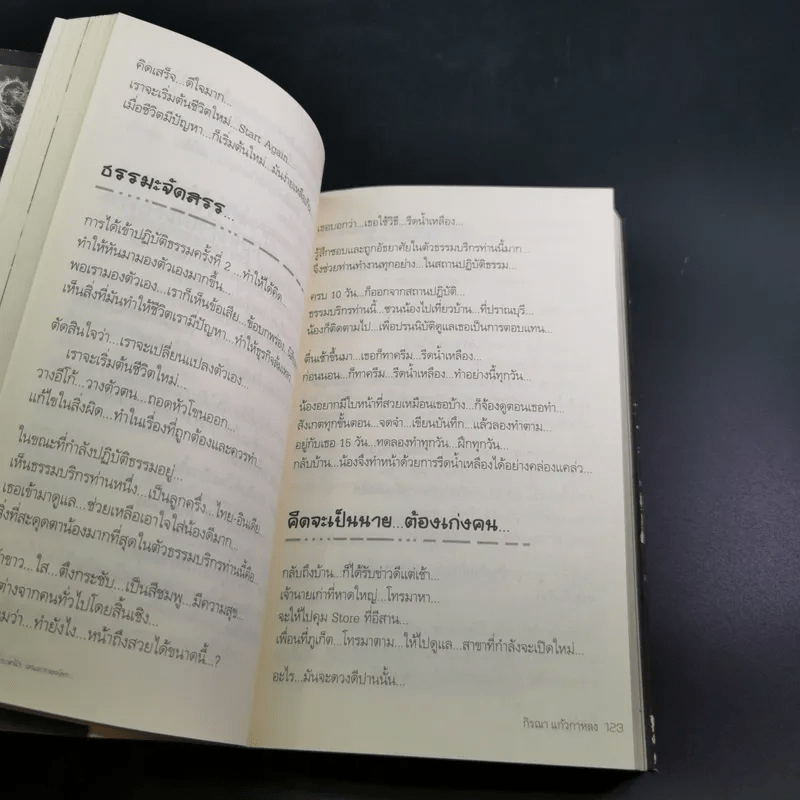 คิดเสร็จ...ดีใจมาก...
เราจะเริ่มต้นชีวิตใหม่...Start Again...
เมื่อชีวิตมีปัญหา...ก็เริ่มต้นใหม่...มันง่ายเหมือน
ธรรมะจัดสรร...
การได้เข้าปฏิบัติธรรมครั้งที่ 2...ทำให้ได้คิด...
ทำให้หันมามองตัวเองมากขึ้น...
พอเรามองตัวเอง...เราก็เห็นข้อเสีย...ข้อบกพร่อง...
เห็นสิ่งที่มันทำให้ชีวิตเรามีปัญหา...ทำให้ธุรกิจ
ตัดสินใจว่า...เราจะเปลี่ยนแปลงตัวเอง...
เราจะเริ่มต้นชีวิตใหม่...
วางอีโก้...วางตัวตน...ถอดหัวโขนออก...
แก้ไขในสิ่งผิด...ทำในเรื่องที่ถูกต้องและควรทำ...
ในขณะที่กำลังปฏิบัติธรรมอยู่...
เห็นธรรมบริกรท่านหนึ่ง...เป็นลูกครึ่ง...ไทย-อินเดีย...
เธอเข้ามาดูแล...ช่วยเหลือเอาใจใส่น้องดีมาก...
สิ่งที่สะดุดตาน้องมากที่สุดในตัวธรรมบริกรท่านนี้คือ...
ขาว...ใส...ตึงกระชับ...เป็นสีชมพู...มีความสุข...
ต่างจากคนทั่วไปโดยสิ้นเชิง...
ว่า...ทำยังไง...หน้าถึงสวยได้ขนาดนี้...?
เธอบอกว่า...เธอใช้วิธี...รีดน้ำเหลือง...
รู้สึกชอบและถูกอัธยาศัยในตัวธรรมบริกรท่านนี้มาก...
จึงช่วยท่านทำงานทุกอย่าง...ในสถานปฏิบัติธรรม...
ครบ 10 วัน...ก็ออกจากสถานปฏิบัติ...
ธรรมบริกรท่านนี้...ชวนน้องไปเที่ยวบ้าน...ที่ปราณบุรี...
น้องก็ติดตามไป...เพื่อปรนนิบัติดูแลเธอเป็นการตอบแทน...
ตื่นเช้าขึ้นมา...เธอก็ทาครีม...รีดน้ำเหลือง...
ก่อนนอน...ก็ทาครีม...รีดน้ำเหลือง...ทำอย่างนี้ทุกวัน...
น้องอยากมีใบหน้าที่สวยเหมือนเธอบ้าง...ก็จ้องดูตอนเธอทำ...
สังเกตทุกขั้นตอน...จดจำ...เขียนบันทึก...แล้วลองทำตาม...
อยู่กับเธอ 15 วัน...ทดลองทำทุกวัน...ฝึกทุกวัน...
กลับบ้าน...น้องจึงทำหน้าด้วยการรีดน้ำเหลืองได้อย่างคล่องแคล่ว...
คิดจะเป็นนาย...ต้องเก่งคน...
กลับถึงบ้าน...ก็ได้รับข่าวดีแต่เช้า...
เจ้านายเก่าที่หาดใหญ่...โทรมาหา...
จะให้ไปคุม Store ที่อีสาน...
เพื่อนที่ภูเก็ต...โทรมาตาม...ให้ไปดูแล...สาขาที่กำลังจะเปิดใหม่...
อะไร...มันจะดวงดีปานนั้น...
ภิรณา แก้วกาหลง 123